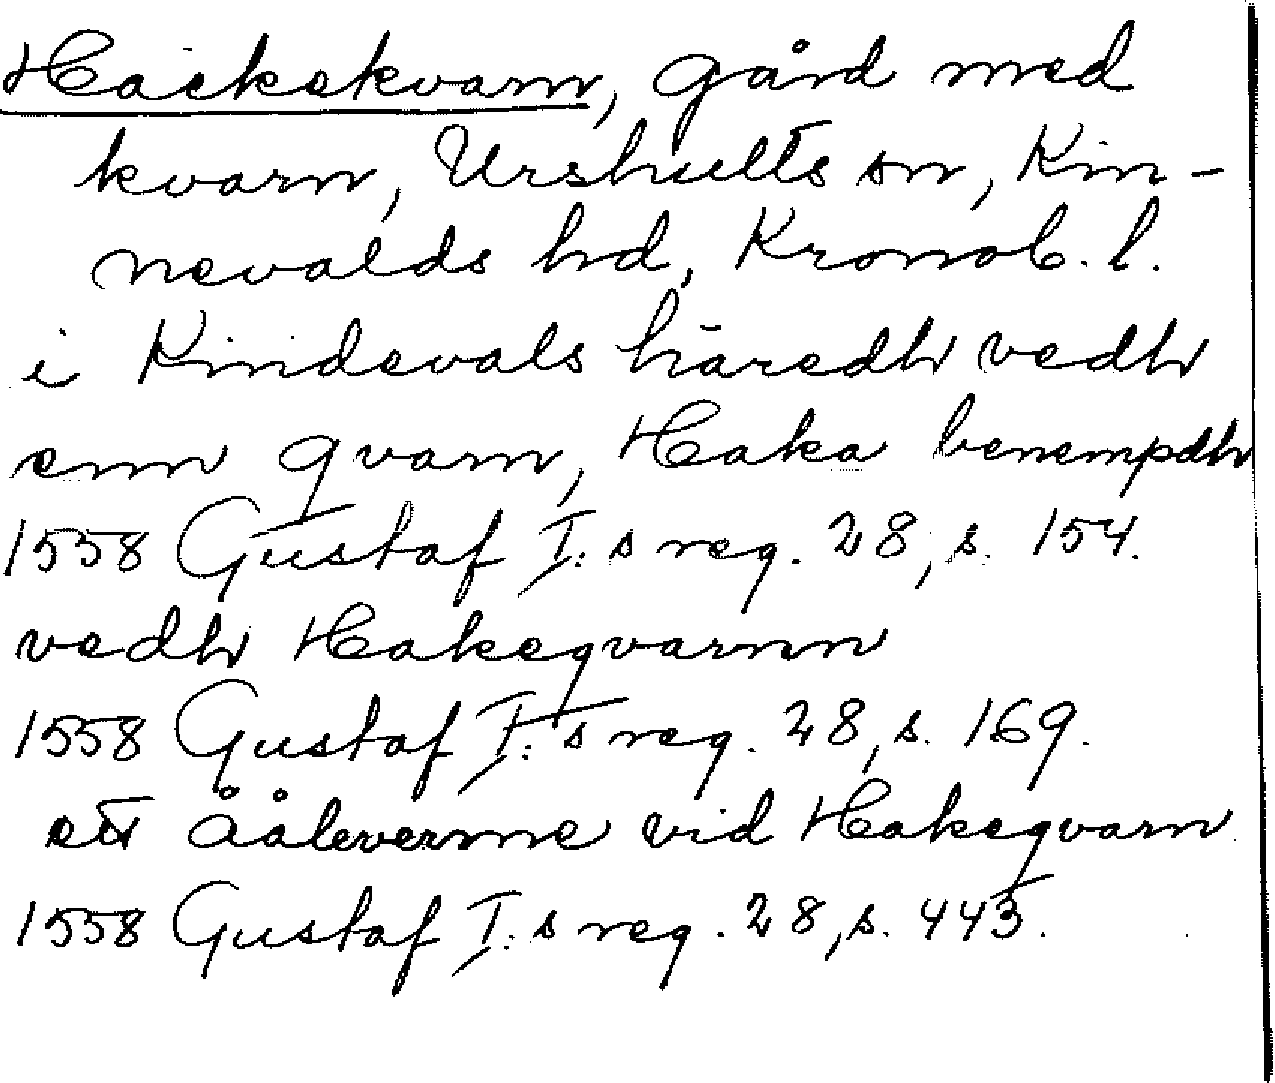 Hackekvarn, gård med
kvarn, Urshults sn, Kin-
nevalds hd, Kronob. l.
i Kindevals häredh vedh
enn qvarn, Haka benempdh
1558 Gustaf I:s reg. 28, s. 154.
vedh Hakeqvarnn
1558 Gustaf I:s reg. 28, s. 169.
ett Åålevernne vid Hakeqvarn
1558 Gustaf I:s reg. 28, s. 443.